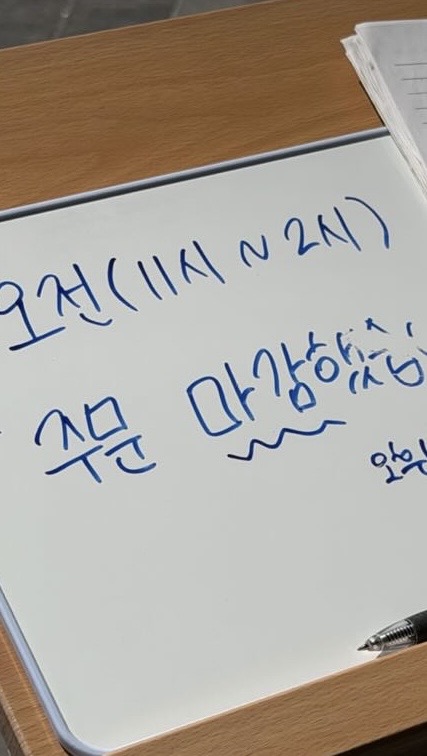 오전(11시 ~ 2시)
주문 마감했습